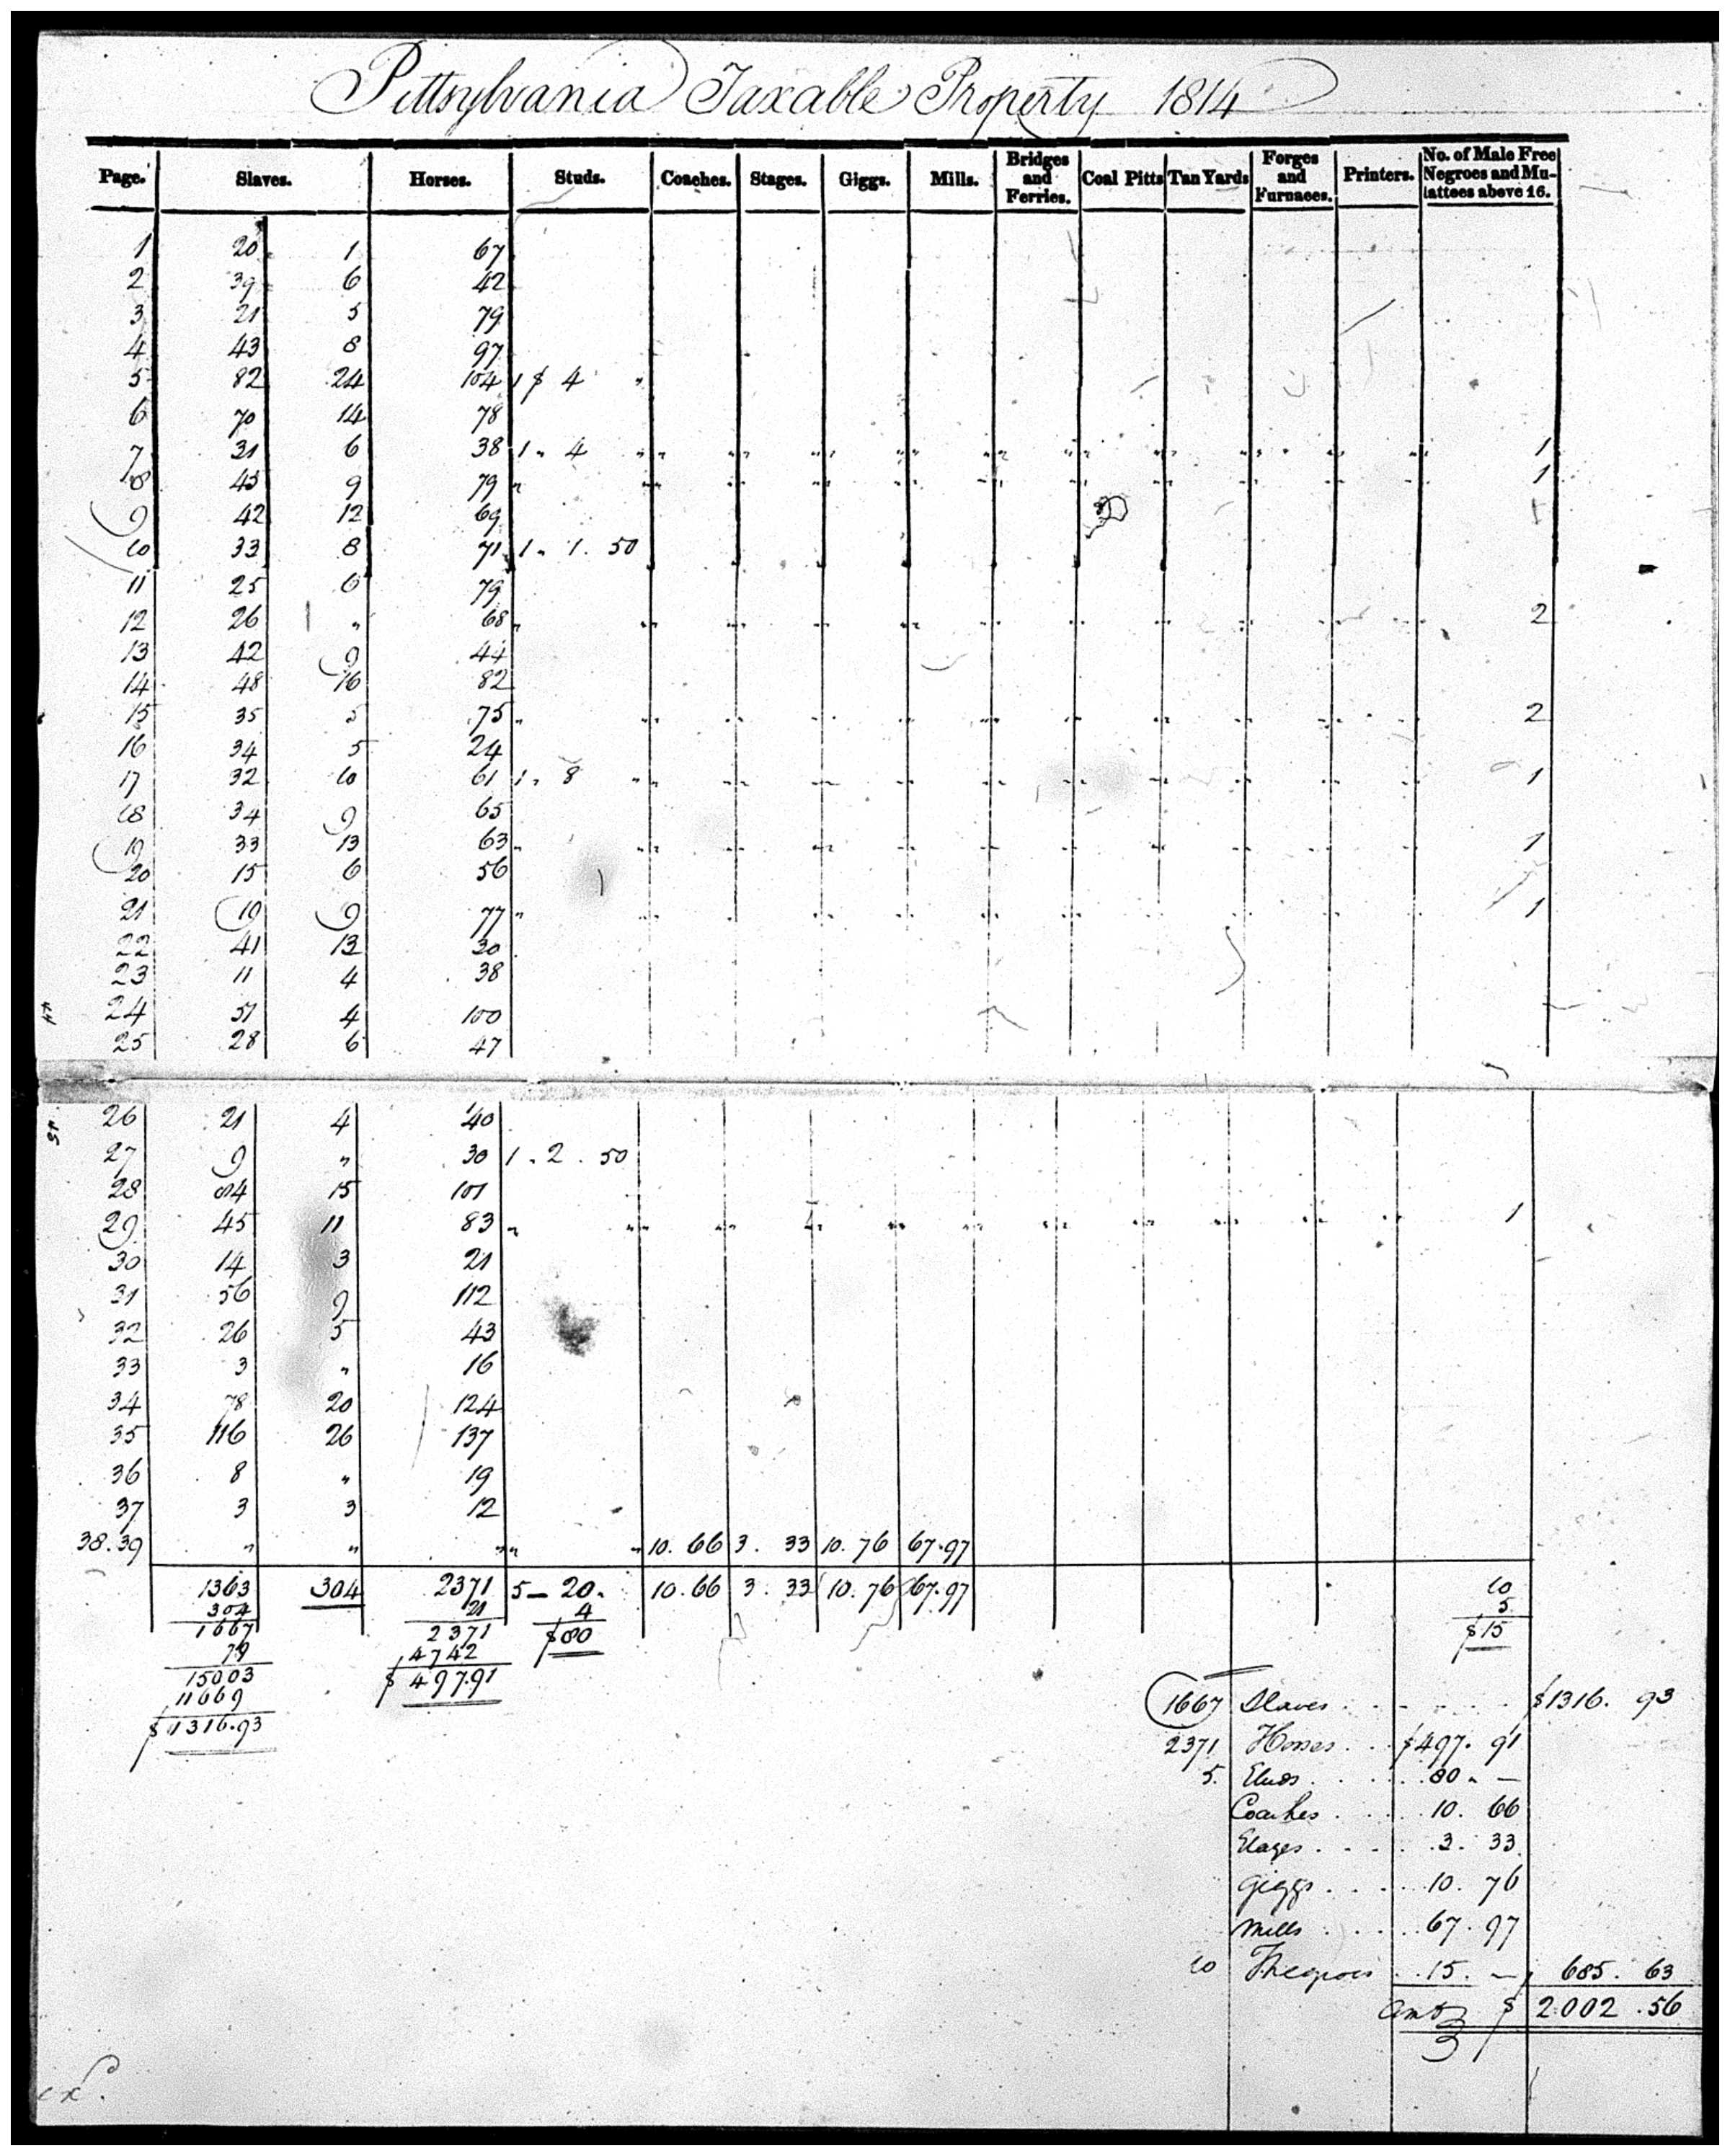 Pittsylvania Taxable Property 1814
Page. Slaves. Horses. Studs. Coaches. Stages. Giggs. Mills. Bridges and Ferries. Coal Pitts Tan Yards Forges and Furnaces. Printers. No. of Male Free Negroes and Mulattoes above 16.
1 20 1 67
2 39 6 42
3 21 5 79
4 43 8 97
5 82 24 104 1 $ 4 "
6 70 14 78
7 31 6 38 1 " 4 " " " " " " " " " " " " " " " " " " " 1
8 45 9 79 " " " " " " " " " " " " " " " " " " " 1
9 42 12 69
10 33 8 71 1 " 1. 50
11 25 6 79
12 26 " 68 " " " " " " " " " " " " " " " " " " " 2
13 42 9 44
14 48 16 82
15 35 5 75 " " " " " " " " " " " " " " " " " " " 2
16 34 5 24
17 32 10 61 1 " 8 " " " " " " " " " " " " " " " " " " " 1
18 34 9 65
19 33 13 63 " " " " " " " " " " " " " " " " " " " 1
20 15 6 56
21 19 9 77 " " " " " " " " " " " " " " " " " " " 1
22 41 13 30
23 11 4 38
24 51 4 100
25 28 6 47
26 21 4 40
27 9 " 30 1 . 2 . 50
28 15 101
29 45 11 83 " " " " " " " " " " " " " " " " " " " 1
30 14 3 21
31 56 9 112
32 26 5 43
33 3 " 16
34 78 20 124
35 116 26 137
36 8 " 19
37 3 3 12
38.39 " " " " " 10. 66 3. 33 10. 76 67.97
1363 304 2371 5 — 20. 10.66 3. 33 10. 76 67.97 10
304 21 4 5
1667 2371 $80 $15
79 4742
15003 $ 497.91
11669
$1316.93
1667 Slaves . . . . . $1316. 93
2371 Horses . . $497. 91
5. Studs . . . . 80 " —
Coaches . . . 10. 66
Stages . . . . 3. 33
Giggs . . . . 10. 76
Mills . . . . 67. 97
10 . . 15. — 685. 63
Amt $ 2002.56